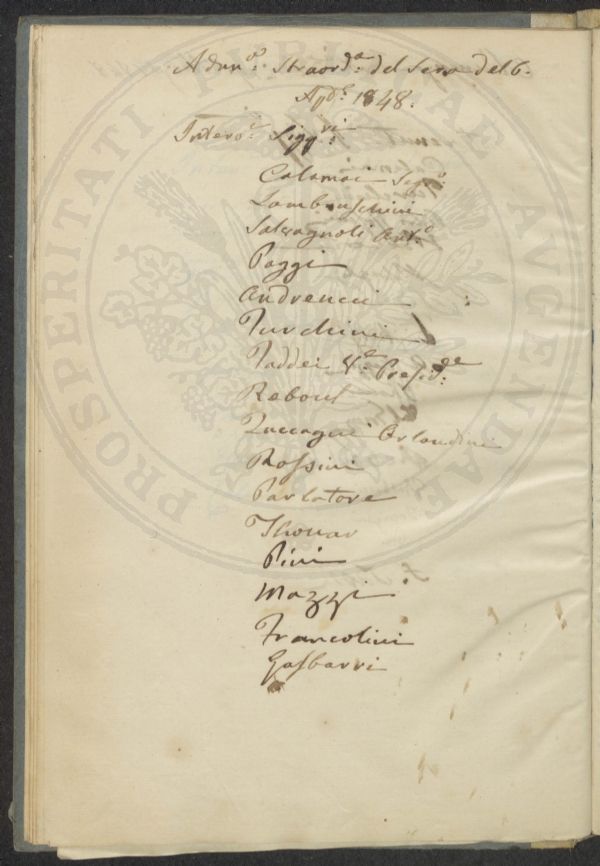 Adun.e Straord.a del Sera del 6.
Ap.le 1848.
Interv.i Sigg.ri
Calamai Seg.o
Lambruschini
Salvagnoli Ant.o
Poggi
Andreucci
Turchini
Taddei V.e Presid.te
Reboul
Zuccagni Orlandini
Rossini
Parlatore
Thouar
Pini
Mazzi
Francolini
Gasbarri
PROSPERITATI PUBLICAE AUGENDAE